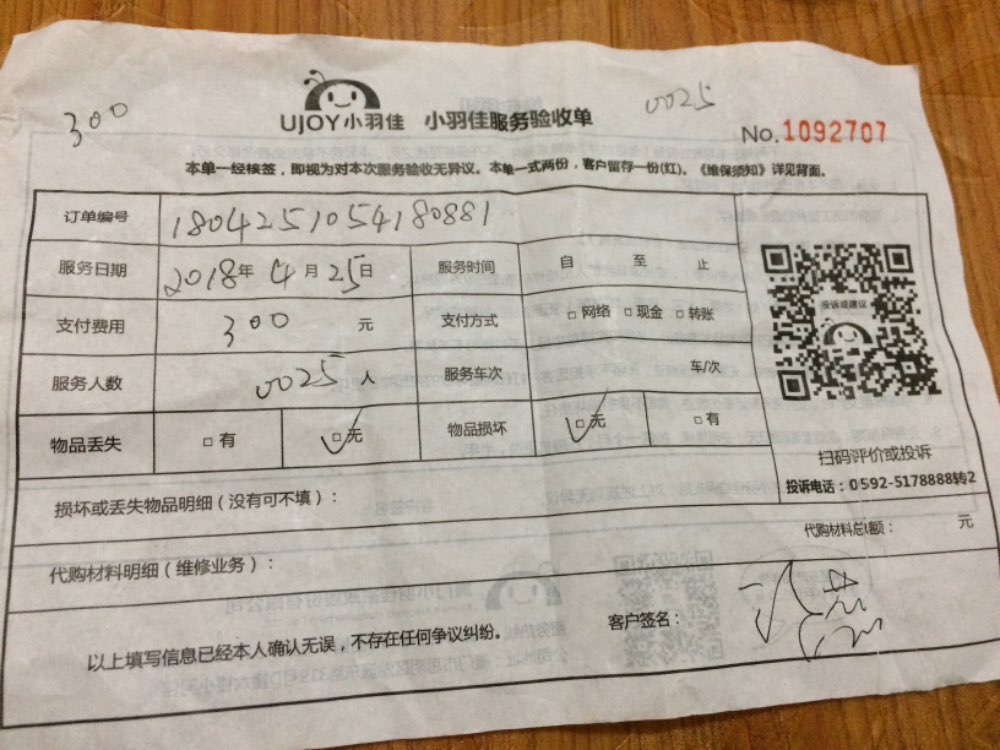 300
0025
UJOY小羽佳 小羽佳服务验收单
No.1092707
本单一经核签，即视为对本次服务验收无异议。本单一式两份，客户留存一份(红)。《维保须知》详见背面。
订单编号 1804251054180881
服务日期 2018年4月25日 服务时间 自 至 止
支付费用 300 元 支付方式 □网络 □现金 □转账
服务人数 0025人 服务车次 车/次
物品丢失 □有 □无 物品损坏 □无 □有
投诉或建议
扫码评价或投诉
投诉电话：0592-5178888转2
损坏或丢失物品明细（没有可不填）：
代购材料总额： 元
代购材料明细（维修业务）：
客户签名：
以上填写信息已经本人确认无误，不存在任何争议纠纷。